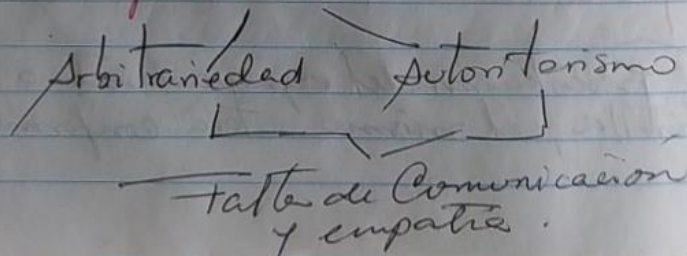 Arbitrariedad Autoritarismo
Falta de Comunicación
y empatía.